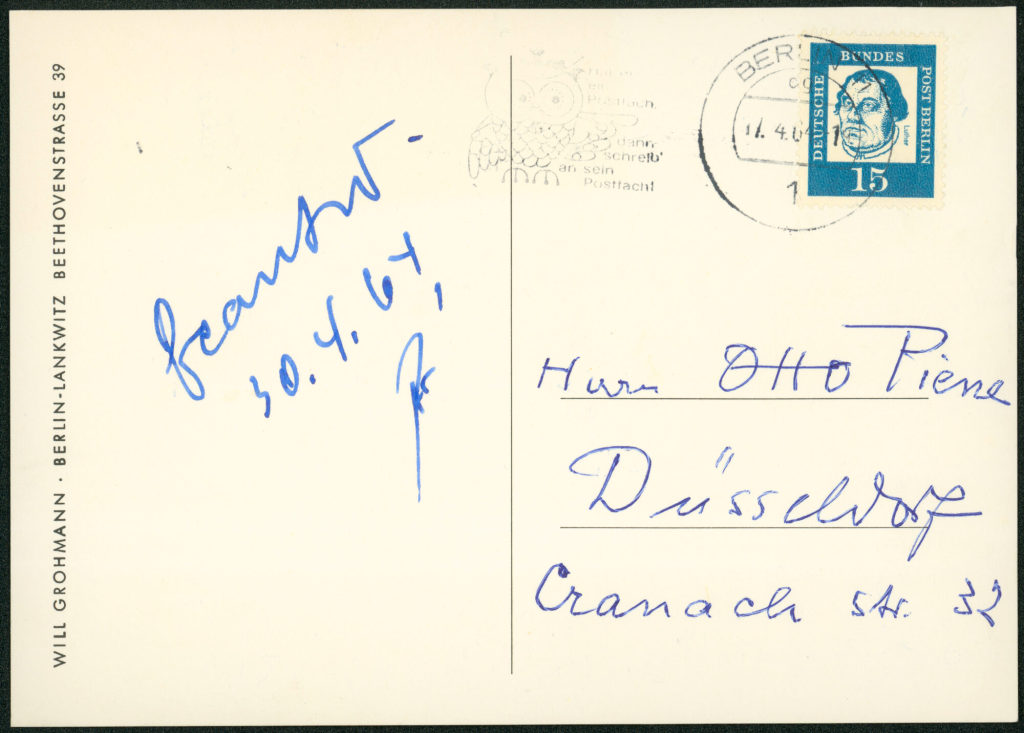 WILL GROHMANN · BERLIN-LANKWITZ BEETHOVENSTRASSE 39
beantw.
30.4.64,
Hat er
ein
Postfach,
dann
schreib'
an sein
Postfach!
BERLIN
17.4.64
1
DEUTSCHE
BUNDES
POST BERLIN
Luther
15
Herrn Otto Piene
Düsseldorf
Cranach str. 32